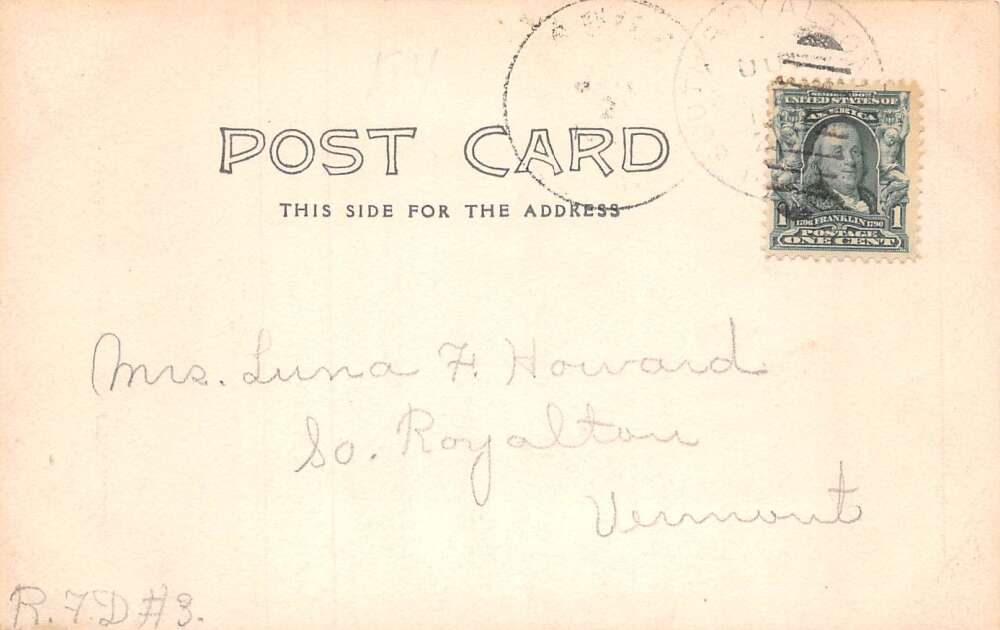 POST CARD
THIS SIDE FOR THE ADDRESS
ROYALTON
SERIES 1902
UNITED STATES OF
AMERICA
1 1706 FRANKLIN 1790 1
POSTAGE
ONE CENT
Mrs. Luna F. Howard
So. Royalton
Vermont
R.F.D #3.